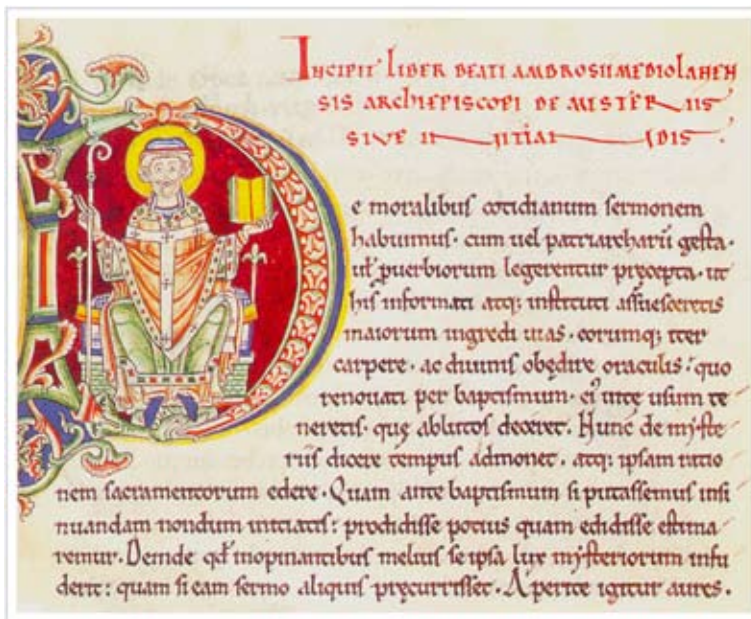 INCIPIT LIBER BEATI AMBROSII MEDIOLANEN
SIS ARCHIEPISCOPI DE MISTERIIS
SIVE INITIANDIS
De moralibus cotidianum sermonem
habuimus· cum uel patriarcharū gesta·
ut̄ ꝓuerbiorum legerentur pręcepta· ut
his informati atq; instituti assuesceretis
maiorum ingredi uias· eorumq; iter
carpere· ac diuinis obędire oraculis: quo
renouati per baptismum· ei᷒ uitę usum te
neretis· quę ablutos deceret. Hunc de myste
riis dicere tempus admonet. atq; ipsam ratio
nem sacramentorum edere. Quam ante baptismum si putassemus insi
nuandam nondum initiatis: prodidisse potius quam edidisse estima
remur. Deinde qđ inopinantibus melius se ipsa lux mysteriorum infu
derit: quam si eam sermo aliquis pręcurrisset. Aperite igitur aures.